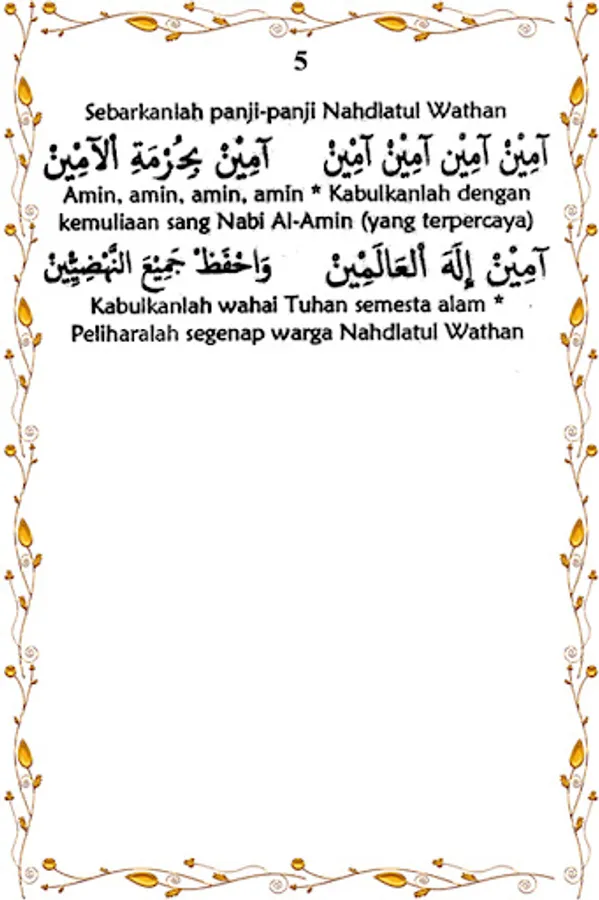 5
Sebarkanlah panji-panji Nahdlatul Wathan
آمِيْنْ آمِيْن آمِيْنْ آمِيْنْ بِحُرْمَةِ اْلآمِيْنْ
Amin, amin, amin, amin * Kabulkanlah dengan
kemuliaan sang Nabi Al-Amin (yang terpercaya)
آمِيْنْ إِلَهَ اْلعَالَمِيْنْ وَاحْفَظْ جَمِيْعَ النَّهْضِيِّيْنْ
Kabulkanlah wahai Tuhan semesta alam *
Peliharalah segenap warga Nahdlatul Wathan